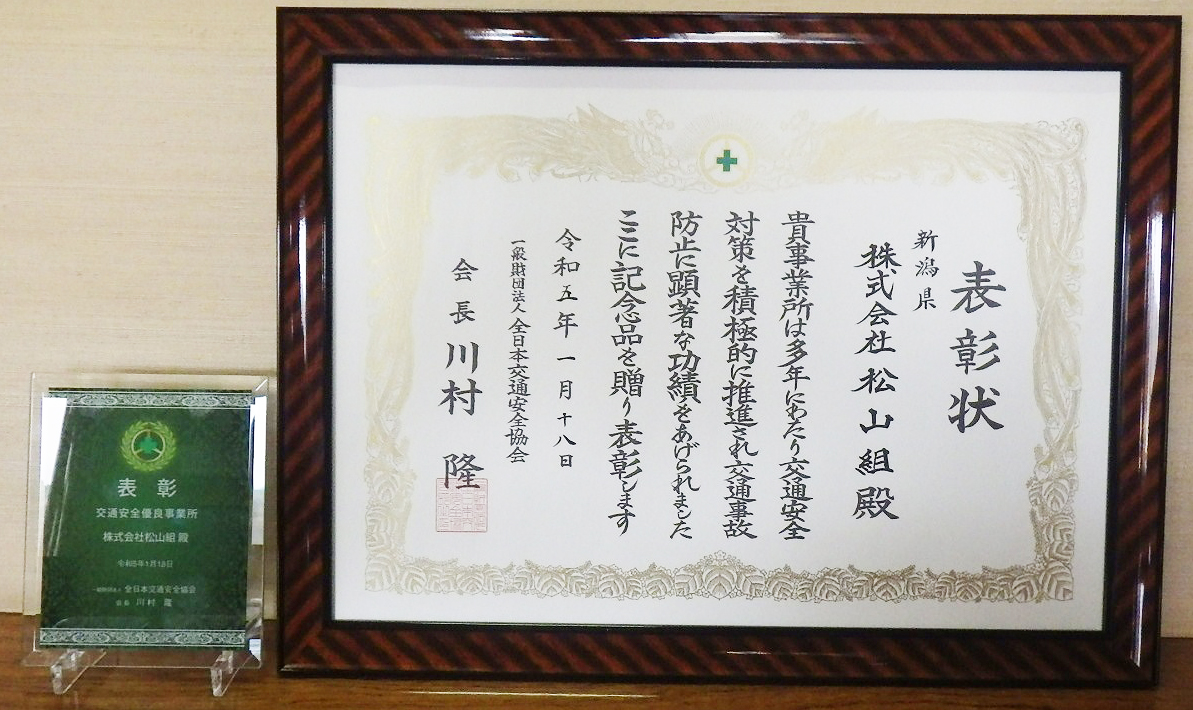 表彰状
新潟県
株式会社松山組殿
貴事業所は多年にわたり交通安全
対策を積極的に推進され交通事故
防止に顕著な功績をあげられました
ここに記念品を贈り表彰します
令和五年一月十八日
一般財団法人 全日本交通安全協会
会長 川村 隆
表 彰
交通安全優良事業所
株式会社松山組 殿
令和5年1月18日
一般財団法人 全日本交通安全協会
会長 川村 隆